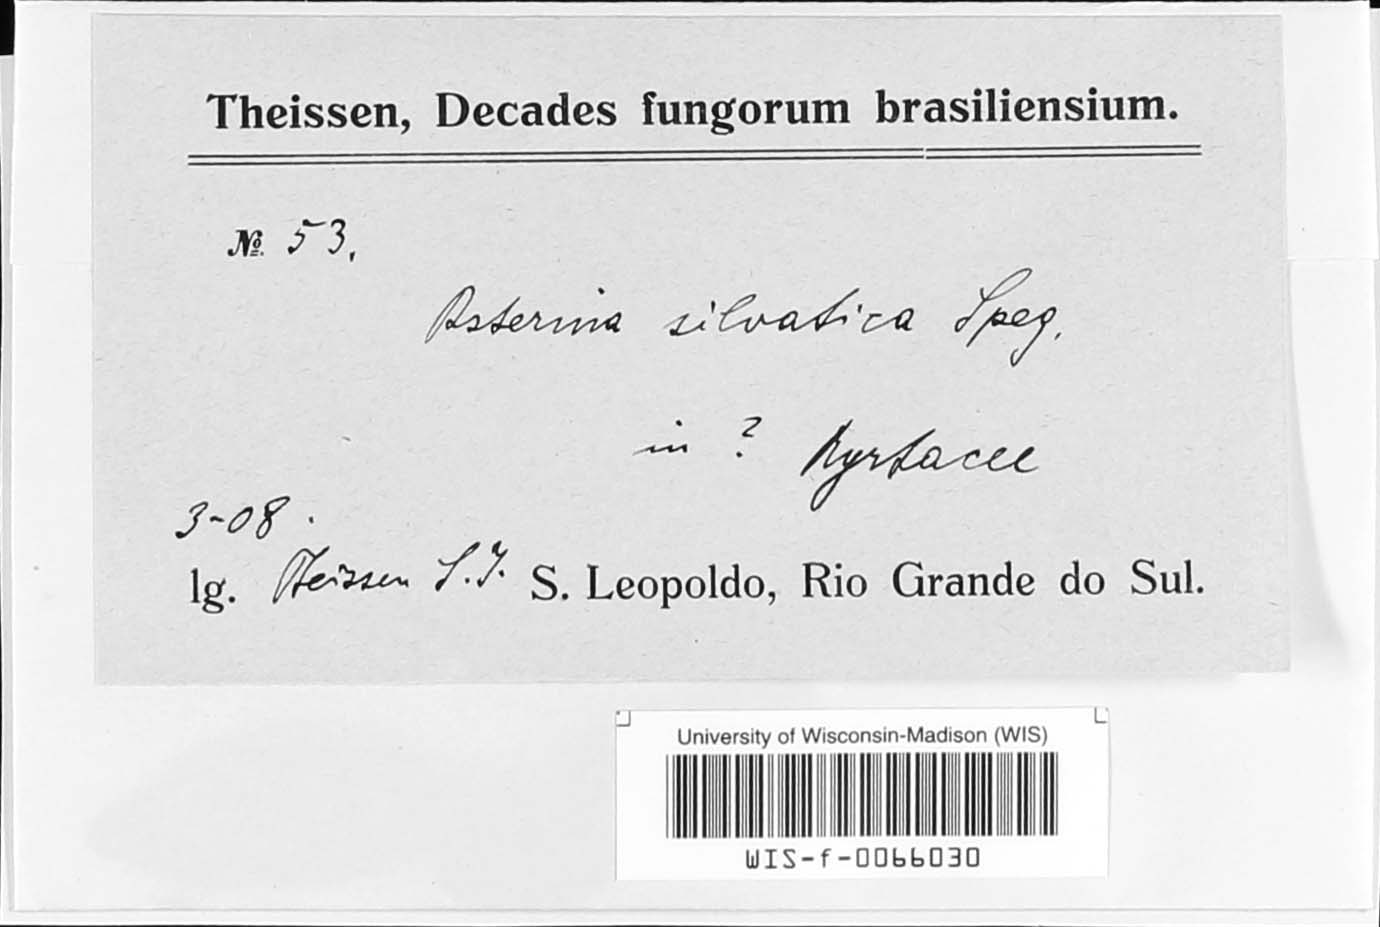 Theissen, Decades fungorum brasiliensium.
№ 53.
Asterina silvatica Speg.
in ? Myrtacee
3-08.
lg. Theissen S.J. S. Leopoldo, Rio Grande do Sul.
University of Wisconsin-Madison (WIS)
WIS-f-0066030